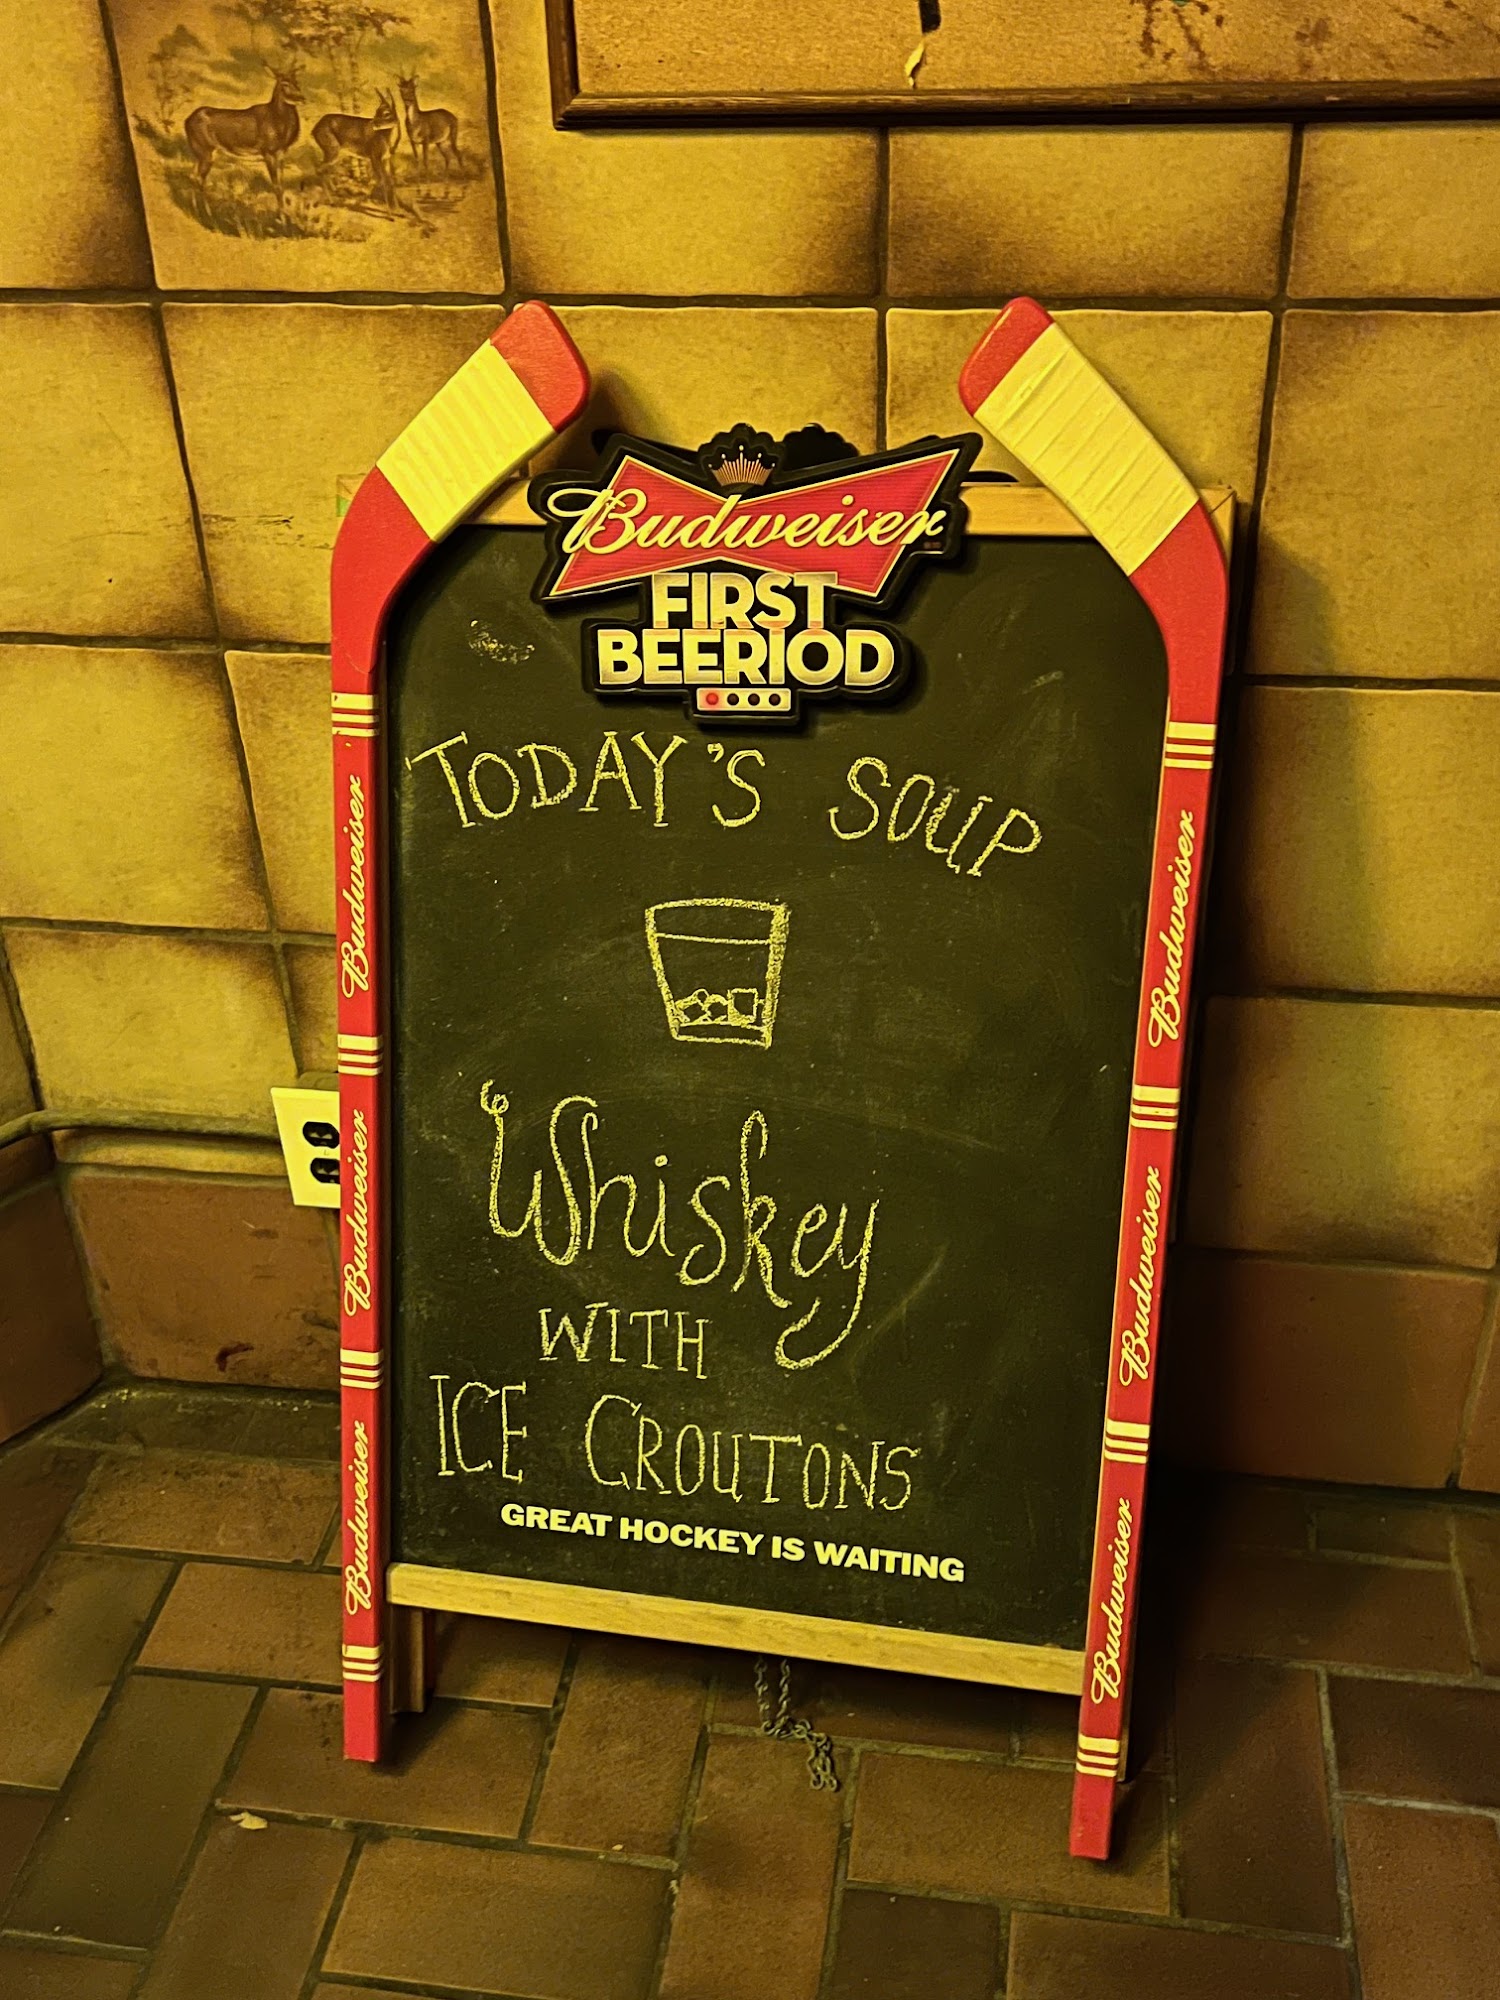 Budweiser
FIRST
BEERIOD
TODAY'S SOUP
Whiskey
WITH
ICE CROUTONS
GREAT HOCKEY IS WAITING
Budweiser
Budweiser
Budweiser
Budweiser
Budweiser
Budweiser